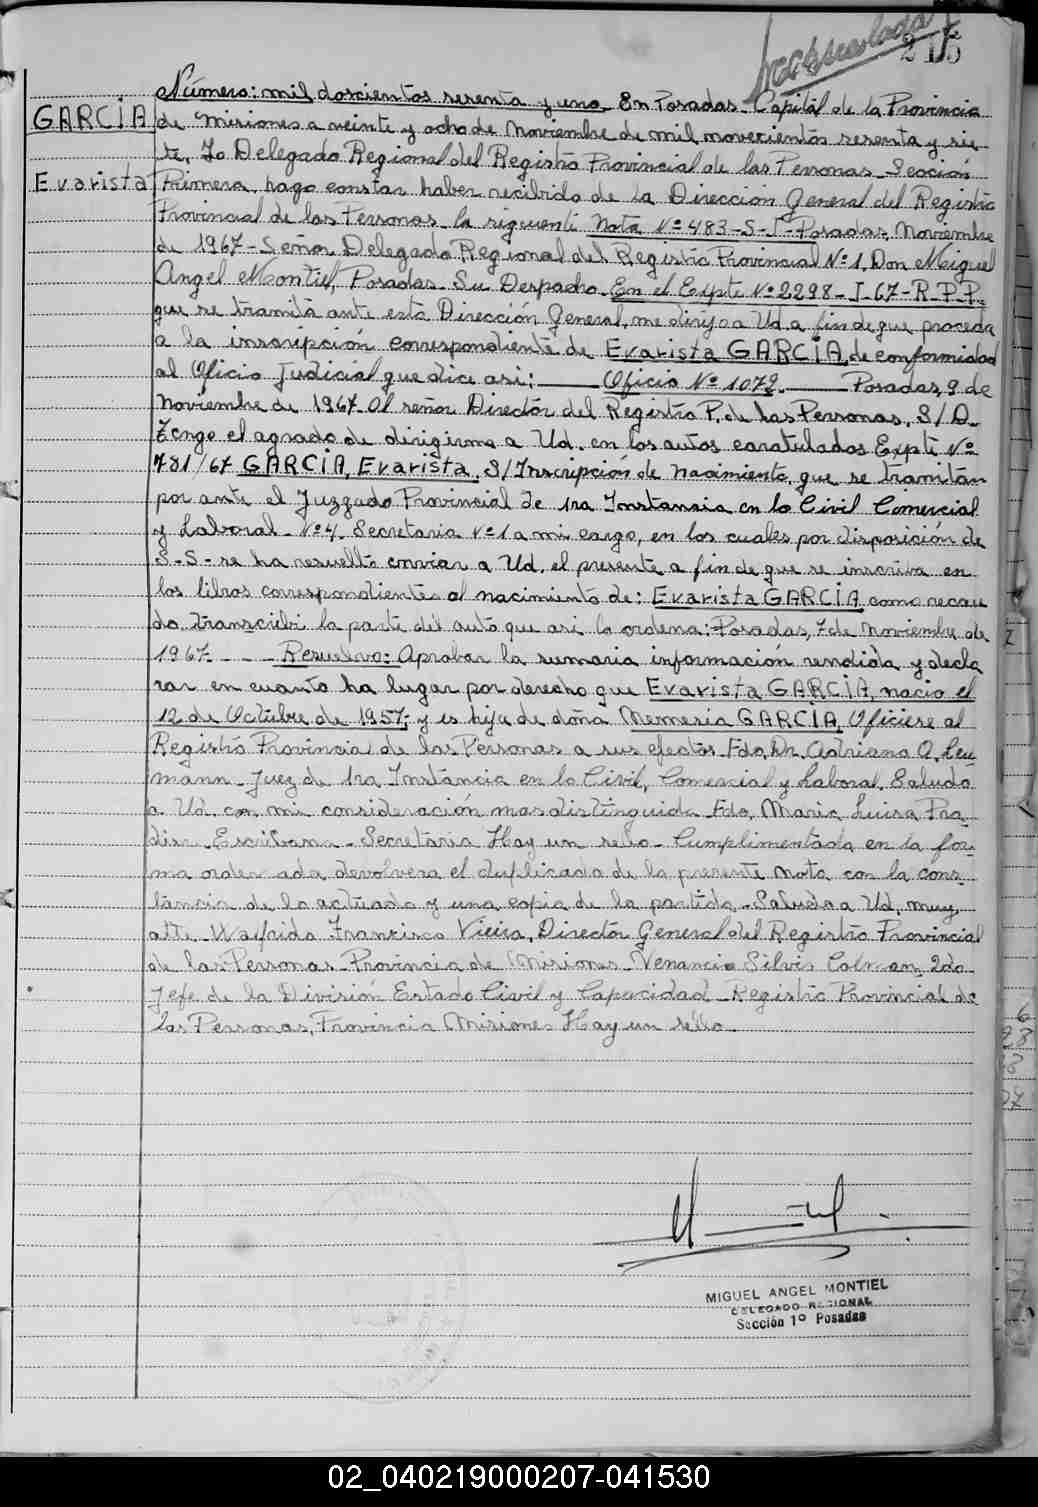 215
Número: mil doscientos sesenta y uno En Posadas-Capital de la Provincia
GARCÍA de Misiones a veinte y ocho de Noviembre de mil novecientos sesenta y sie-
te, Yo Delegado Regional del Registro Provincial de las Personas Sección
Evarista Primera, hago constar haber recibido de la Dirección General del Registro
Provincial de las Personas la siguiente Nota Nº 483-S-I-Posadas, Noviembre
de 1967-Señor Delegado Regional del Registro Provincial Nº 1, Don Miguel
Angel Montiel, Posadas-Su Despacho-En el Expte Nº 2298-I-67-R-P-P-
que se tramita ante esta Dirección General, me dirijo a Ud. a fin de que proceda
a la inscripción correspondiente de Evarista GARCÍA, de conformidad
al Oficio Judicial que dice asi: ——— Oficio Nº 1072. ——— Posadas, 9 de
Noviembre de 1967. Al señor Director del Registro P. de las Personas, S/D.
Tengo el agrado de dirigirme a Ud. en los autos caratulados Expte Nº
781/67 GARCÍA, Evarista, S/Inscripción de nacimiento, que se tramitan
por ante el Juzgado Provincial de 1ra Instansia en lo Civil Comercial
y Laboral-Nº 4. Secretaria Nº 1 a mi cargo, en los cuales por disposición de
S-S-se ha resuelto enviar a Ud. el presente a fin de que se inscriba en
los libros correspondientes al nacimiento de: Evarista GARCÍA como recau
do transcribi la parte del auto que asi lo ordena: Posadas, 7 de Noviembre de
1967. --- Resuelvo: Aprobar la sumaria información rendida y decla
rar en cuanto ha lugar por derecho que Evarista GARCÍA, nacio el
12 de Octubre de 1957; y es hija de doña Memesia GARCÍA, Ofíciese al
Registro Provincial de las Personas a sus efectos Fdo, Dr. Adriano A. Leu
mann-Juez de 1ra Instancia en lo Civil, Comercial y Laboral. Saludo
a Ud. con mi consideración mas distinguida Fdo, Maria Luisa Pra
dier Escribana-Secretaria Hay un sello-Cumplimentada en la for-
ma ordenada devolvera el duplicado de la presente Nota con la cons-
tancia de lo actuado y una copia de la partida-Saluda a Ud, muy
atte-Walfrido Francisco Vieira, Director General del Registro Provincial
de las Personas-Provincia de Misiones-Venancio Silvio Colman 2do
Jefe de la División Estado Civil y Capacidad-Registro Provincial de
las Personas, Provincia Misiones Hay un sello-
MIGUEL ANGEL MONTIEL
DELEGADO REGIONAL
Sección 1º Posadas
02_040219000207-041530